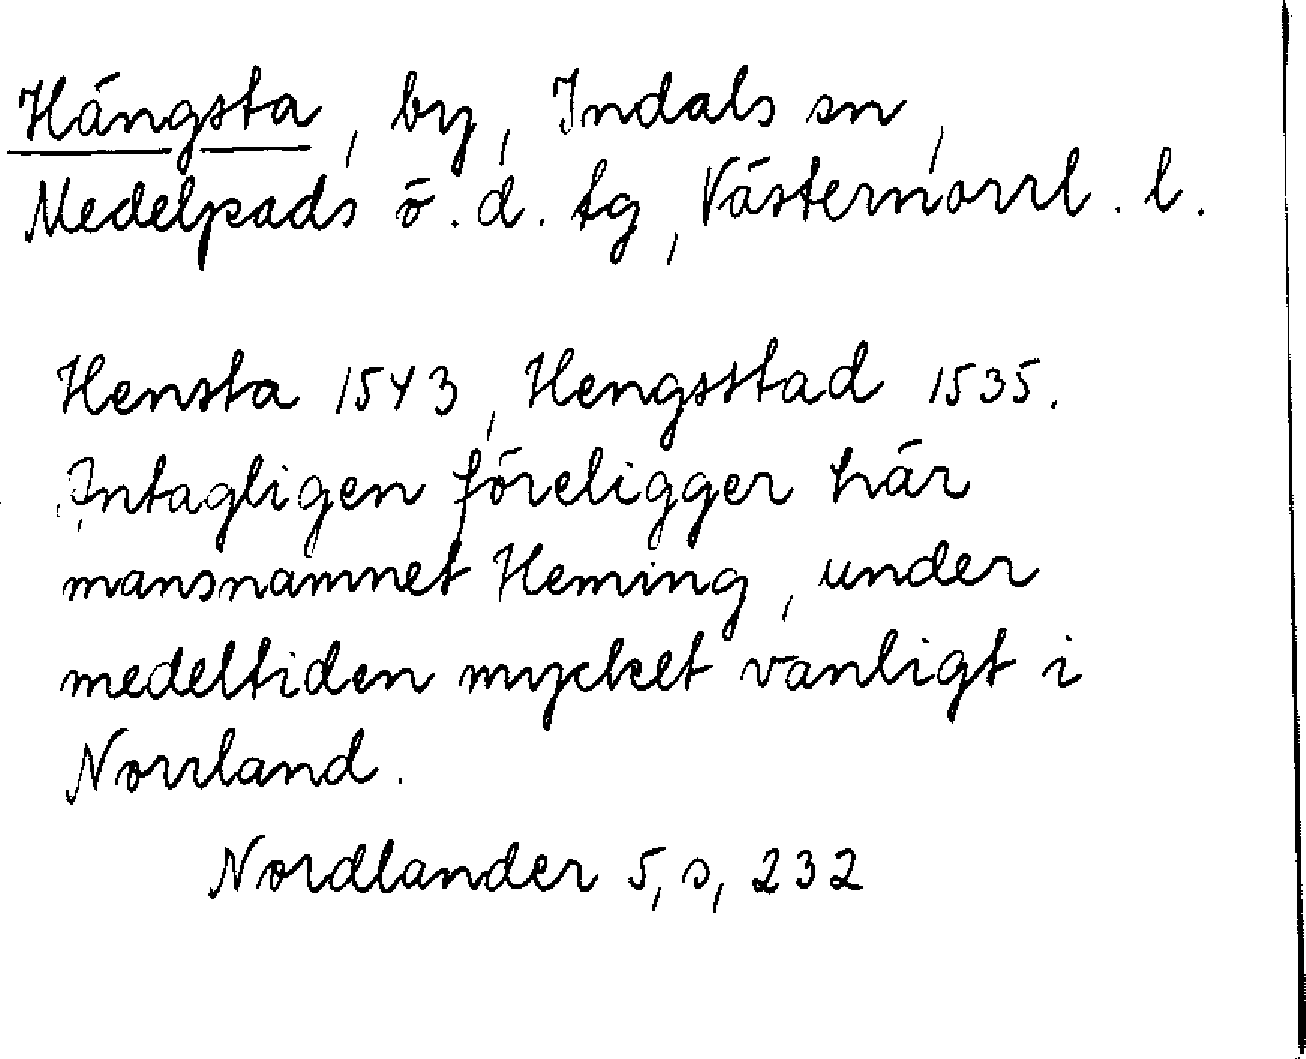 Hängsta, by, Indals sn,
Medelpads ö.d. tg, Västernorrl. l.
Hensta 1543, Hengsstad 1535.
Antagligen föreligger här
mansnamnet Heming, under
medeltiden mycket vanligt i
Norrland.
Nordlander 5, s, 232